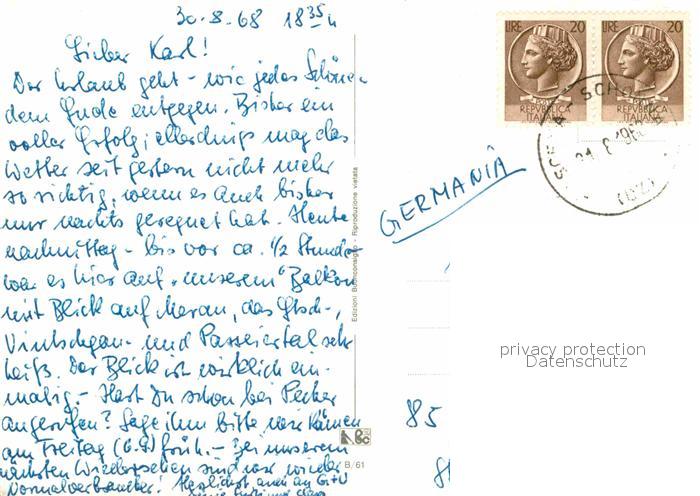 30.8.68 18³⁵ h
Lieber Karl!
Der Urlaub geht - wie jedes Schöne -
dem Ende entgegen. Bisher ein
voller Erfolg; allerdings mag das
Wetter seit gestern nicht mehr
so richtig, wenn es auch bisher
nur nachts geregnet hat. Heute
nachmittag - bis vor ca. 1/2 Stunde -
war es hier auf "unserem" Balkon
mit Blick auf Meran, das Etsch-,
Vintschgau- und Passeiertal sehr
heiß. Der Blick ist wirklich ein-
malig. - Hast Du schon bei Pecher
angerufen? Sage ihm bitte wir kämen
am Freitag (6.9.) früh. - Bei unserem
nächsten Wiedersehen sind wir wieder
Normalverbraucher! Herzlichst auch an G.+V
Edizioni Buonconsiglio - Riproduzione vietata
B/61
LIRE 20
REPVBBLICA
ITALIANA
LIRE 20
REPVBBLICA
ITALIANA
GERMANIA
privacy protection
Datenschutz
85